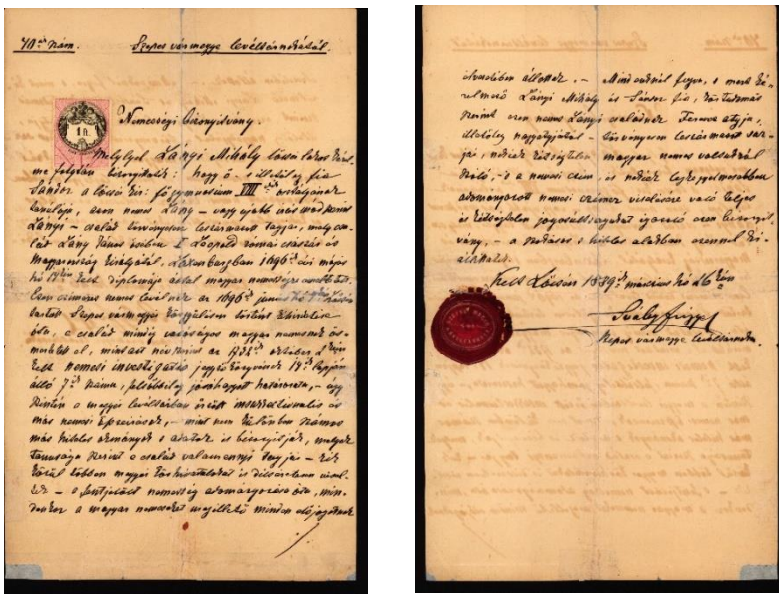 70ik szám. Szepes vármegye levéltárnokától.
1 ft.
Nemességi bizonyitvány.
Melylyel Lányi Mihály lőcsei lakos kérel-
me folytán bizonyitom: hogy ő s illetőleg fia
Sándor a lőcsei kir. főgymnasium VIII ik osztályának
tanulója, azon nemes Lány – vagy ujabb irásmód szerint
Lányi – család törvényesen leszármazott tagjai, mely csa-
lád Lány János
I Leopold római császár és
Magyarország királyától, Laxenburgban 1696 évi május
hó kelt diplomája által magyar nemességre emeltetett.
Ezen czimeres nemes levél az 1696 junius hó
tartott Szepes vármegyei közgyülésen történt kihirdetése
óta, a család mindig valóságos magyar nemesnek is-
mertetett el, mint azt név szerint az október
kelt nemesi investigatio jegyzőkönyvének lapján
álló 7ik számu, határozata, – ugy
szintén a megyei levéltárban őrzött insurrectionalis és
más nemesi – mint nem különben számos
más hiteles okmányok s adatok is bizonyitják, melyek
tanusága szerint a család valamennyi tagjai – kik
közül többen megyei is visel-
tek – a nemesség adományozása óta, min-
denkor a magyar nemeseket megillető minden előjogoknak
élvezetében állottak. – Mind ezeknél fogva, s mert ké-
relmező Lányi Mihály és Sándor fia,
szerint azon nemes Lányi családnak Ferencz atyja,
illetőleg nagyatyjától – törvényesen leszármazott sar-
jai, nekik kétségtelen magyar nemes voltukról
szóló, – s a nemesi czim, és nekik legkegyelmesebben
adományozott nemesi czimer viselésére való teljes
és kétségtelen jogosultságukat igazoló ezen bizonyit-
vány, – a szokásos s hiteles alakban ezennel ki-
állittatik.
Kelt Lőcsén 1889 ik márczius hó 26 kán
Szepes vármegye levéltárnoka.